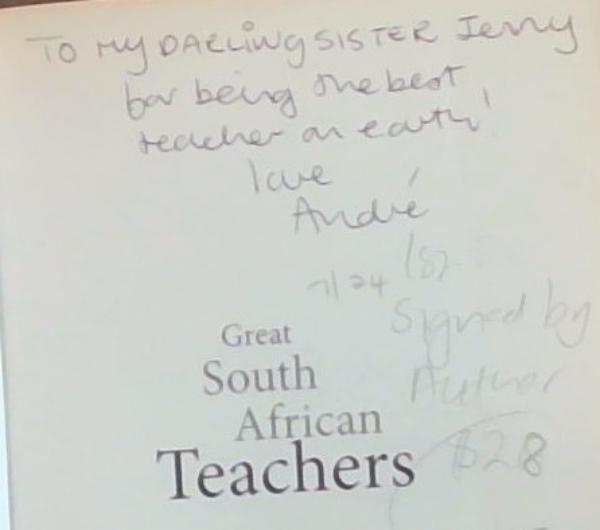 TO MY DARLING SISTER Jenny
for being the best
teacher on earth!
love
André
7/24 (S)
Signed by
Author
Great
South
African
Teachers
$28